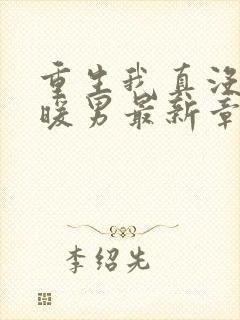 重生我真没
暖男最新章
李绍先